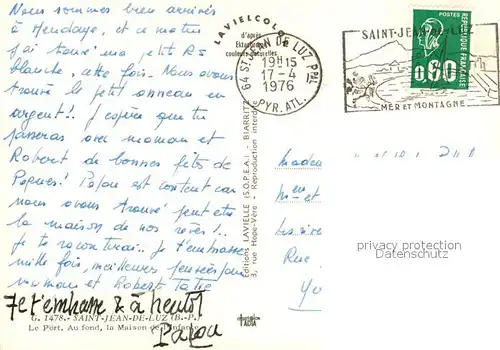 Nous sommes bien arrivés
à Hendaye, et ce matin
j'ai trouvé ma petit R5
blanche, cette fois. Nous avons
trouvé le petit anneau en
argent!.. J'espère que tu
passeras avec maman et
Robert de bonnes fêtes de
Pâques! Palou est content car
nous avons trouvé peut être
la maison de nos rêves!..
je te raconterai.. Je t'embrasse
mille fois, meilleures pensées pour
maman et Robert Tatie
Je t'embrasse & à bientôt
Palou
G. 1478. - SAINT-JEAN-DE-LUZ (B.-P.)
Le Port. Au fond, la Maison de l'Infante
LAVIELCOLOR
d'après
Ektachrome
couleurs naturelles
Editions LAVIELLE (S.O.P.E.A.) - BIARRITZ
3, rue Hope-Vère - Reproduction interdite
64 ST-JEAN DE LUZ PPAL
19H15
17-4
1976
PYR. ATL.
SAINT-JEAN-DE-LUZ
MER ET MONTAGNE
POSTES
0,60
REPUBLIQUE FRANÇAISE
Rue
privacy protection
Datenschutz